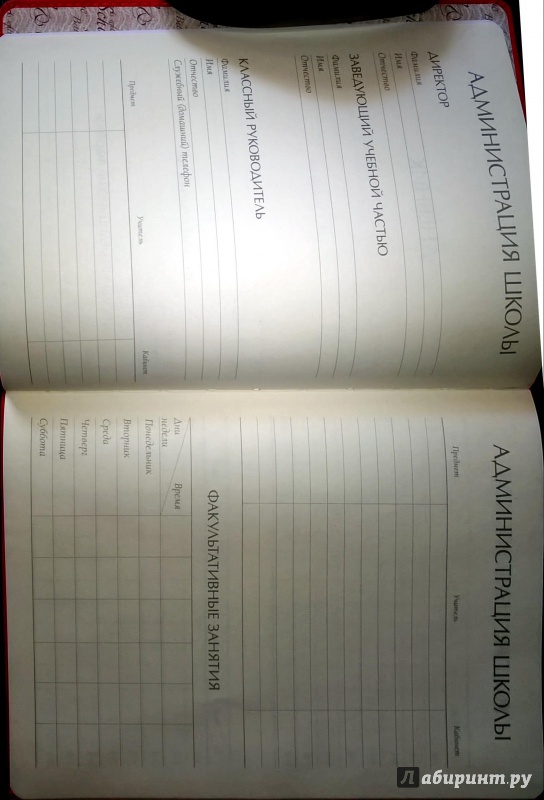 АДМИНИСТРАЦИЯ ШКОЛЫ
ДИРЕКТОР
Фамилия
Имя
Отчество
ЗАВЕДУЮЩИЙ УЧЕБНОЙ ЧАСТЬЮ
Фамилия
Имя
Отчество
КЛАССНЫЙ РУКОВОДИТЕЛЬ
Фамилия
Имя
Отчество
Служебный (домашний) телефон
Предмет Учитель Кабинет
АДМИНИСТРАЦИЯ ШКОЛЫ
Предмет Учитель Кабинет
ФАКУЛЬТАТИВНЫЕ ЗАНЯТИЯ
Время
Дни недели
Понедельник
Вторник
Среда
Четверг
Пятница
Суббота
Лабиринт.ру